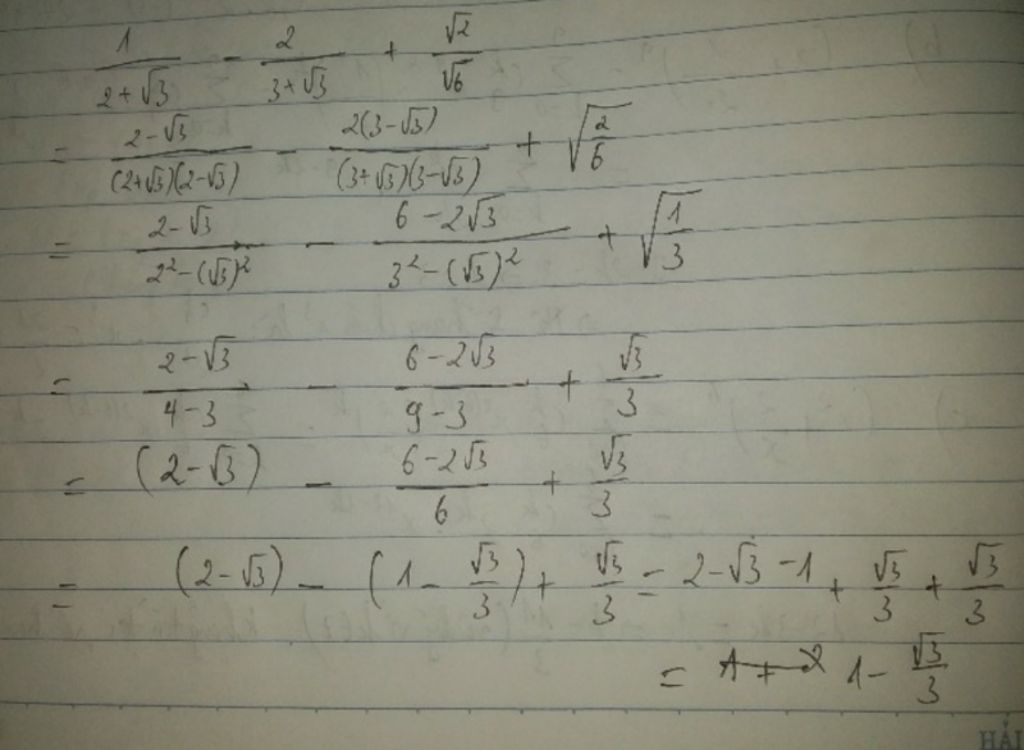 1/(2+√3) - 2/(3+√3) + √2/√6
= (2-√3)/((2+√3)(2-√3)) - 2(3-√3)/((3+√3)(3-√3)) + √(2/6)
= (2-√3)/(2²-(√3)²) - (6-2√3)/(3²-(√3)²) + √(1/3)
= (2-√3)/(4-3) - (6-2√3)/(9-3) + √3/3
= (2-√3) - (6-2√3)/6 + √3/3
= (2-√3) - (1-√3/3) + √3/3 = 2-√3-1 + √3/3 + √3/3
= 1-√3/3
HẢI